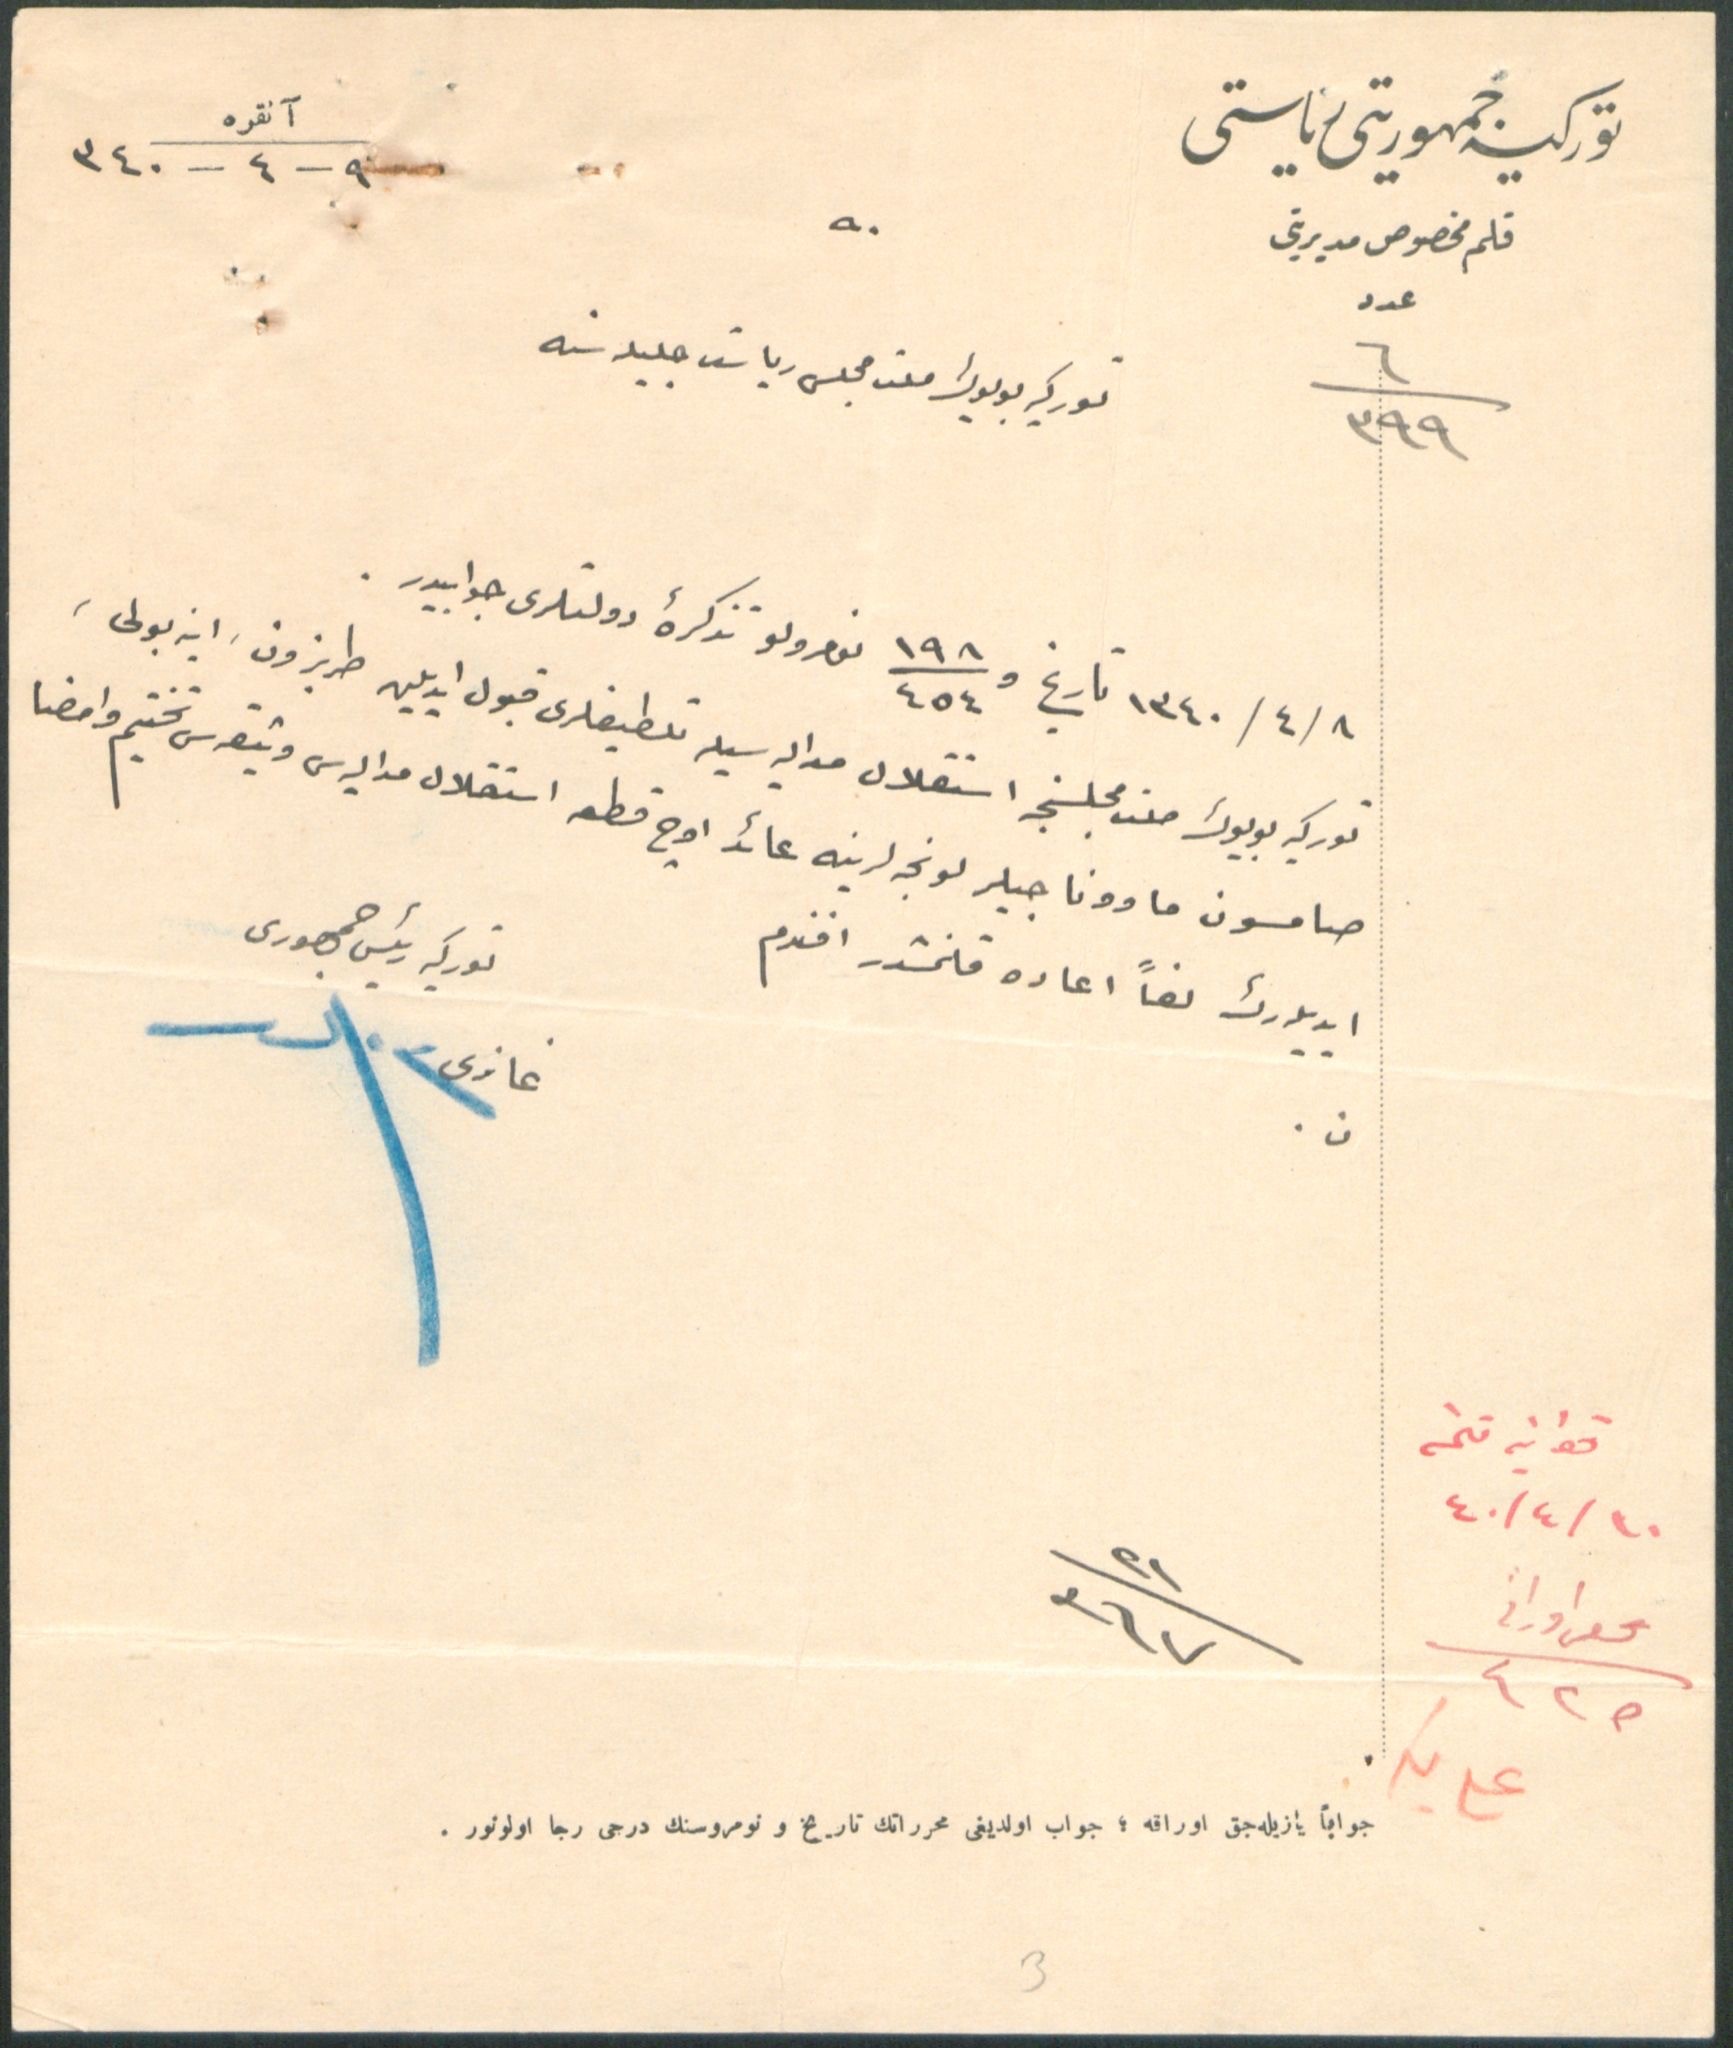 توركیه جمهوریتی ریاستی
قلم مخصوص مدیریتی
عدد
٦
٣٩٩
آنقره
٩ - ٤ - ٣٤٠
توركیه بویوك ملت مجلسی ریاست جلیله سنه
٨ / ٤ / ١٣٤٠ تاریخ و ١٩٨ / ٤٥٤ نومرولو تذكرۀ دولتلری جوابیدر .
توركیه بویوك ملت مجلسنجه استقلال مدالیه سیله تلطیفلری قبول ایدیلن طربزون ، اینه بولی ،
صامسون ماووناجیلر لونجه لرینه عائد اوچ قطعه استقلال مدالیه سی وثیقه سی تختیم و امضا
ایدیلرك لفاً اعاده قلنمشدر افندم
ن .
توركیه رئیس جمهوری
غازی م . كمال
قوانین قلمنه
١٠ / ٤ / ٤٠
مجلس اوراق
٤٢٥
علی بك
جواباً یازیله جق اوراقه ؛ جواب اولدیغی محرراتك تاریخ و نومروسنك درجی رجا اولونور .
3